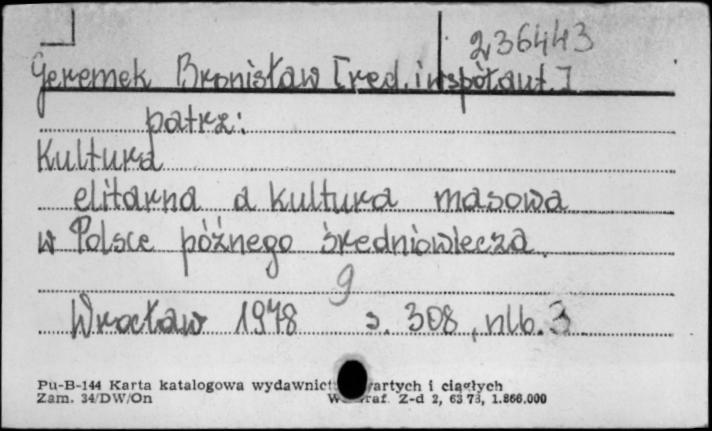 236443
Geremek Bronisław [red. i współaut.]
patrz:
Kultura
elitarna a kultura masowa
w Polsce późnego średniowiecza.
9
Wrocław 1978 s. 308, nlb. 3
Pu-B-144 Karta katalogowa wydawnict i ciągłych
Zam. 34/DW/On Z-d 2, 63 73, 1.866.000